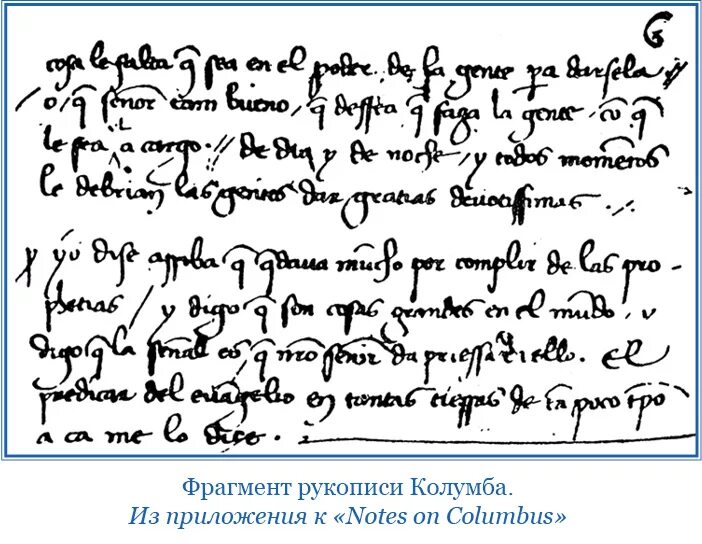 6
cosa le falta q̃ sea en el poder de la gente pa darsela //
/ o q̃ señor tam bueno, q̃ dessea q̃ faga la gente, cõ q̃
le sea ^L a cargo. // de dia y de noche / y todos momẽtos
le debrian las gentes dar gratias devotissimas . //.
/ y yo dise arriba q̃ q̃dava mũcho por complir de las pro-
phetias / y digo q̃ son cosas grandes en el mũdo, y
digo q̃ la señal es q̃ nr̃o señor da priessa en ello. El
predicar del evãgelio en tantas tierras de tã poco tp̃o
a ca me lo dice.
Фрагмент рукописи Колумба.
Из приложения к «Notes on Columbus»